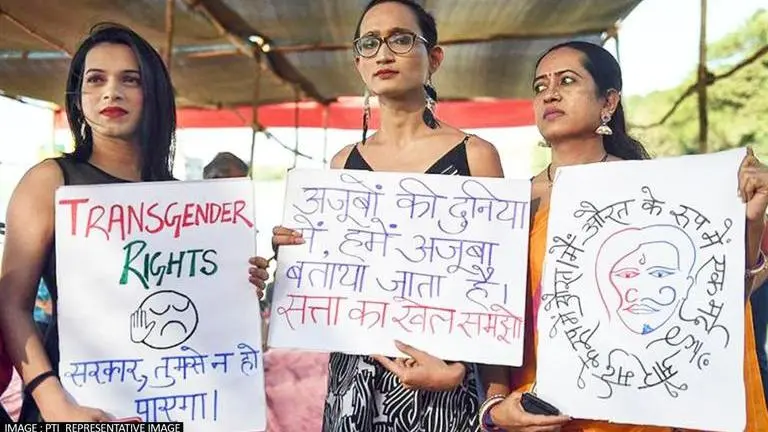 TRANSGENDER
RIGHTS
सरकार, तुमसे न हो
पाएगा।
अजूबों की दुनिया
में, हमें अजूबा
बताया जाता है।
सत्ता का खेल समझो
औरत के रूप में एक मर्द और
IMAGE : PTI_REPRESENTATIVE IMAGE